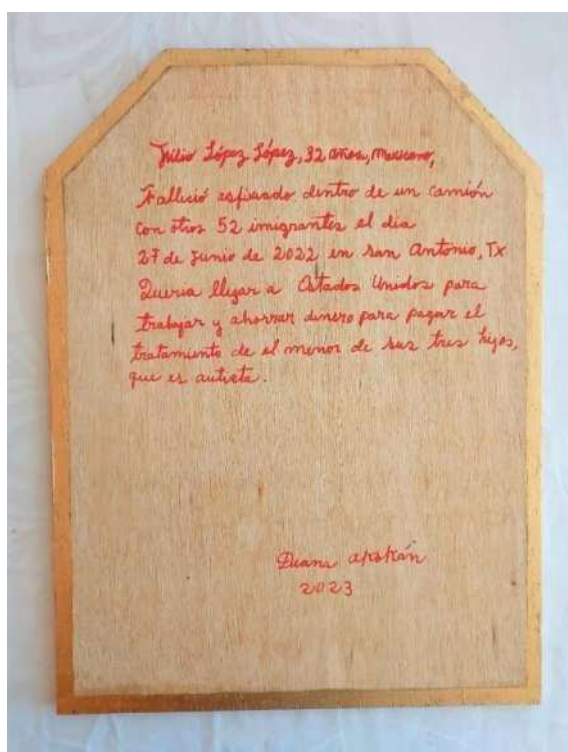 Julio López López, 32 años, mexicano,
Falleció asfixiado dentro de un camión
con otros 52 inmigrantes el día
27 de Junio de 2022 en San Antonio, TX
Quería llegar a Estados Unidos para
trabajar y ahorrar dinero para pagar el
tratamiento de el menor de sus tres hijos,
que es autista.
Diana
2023